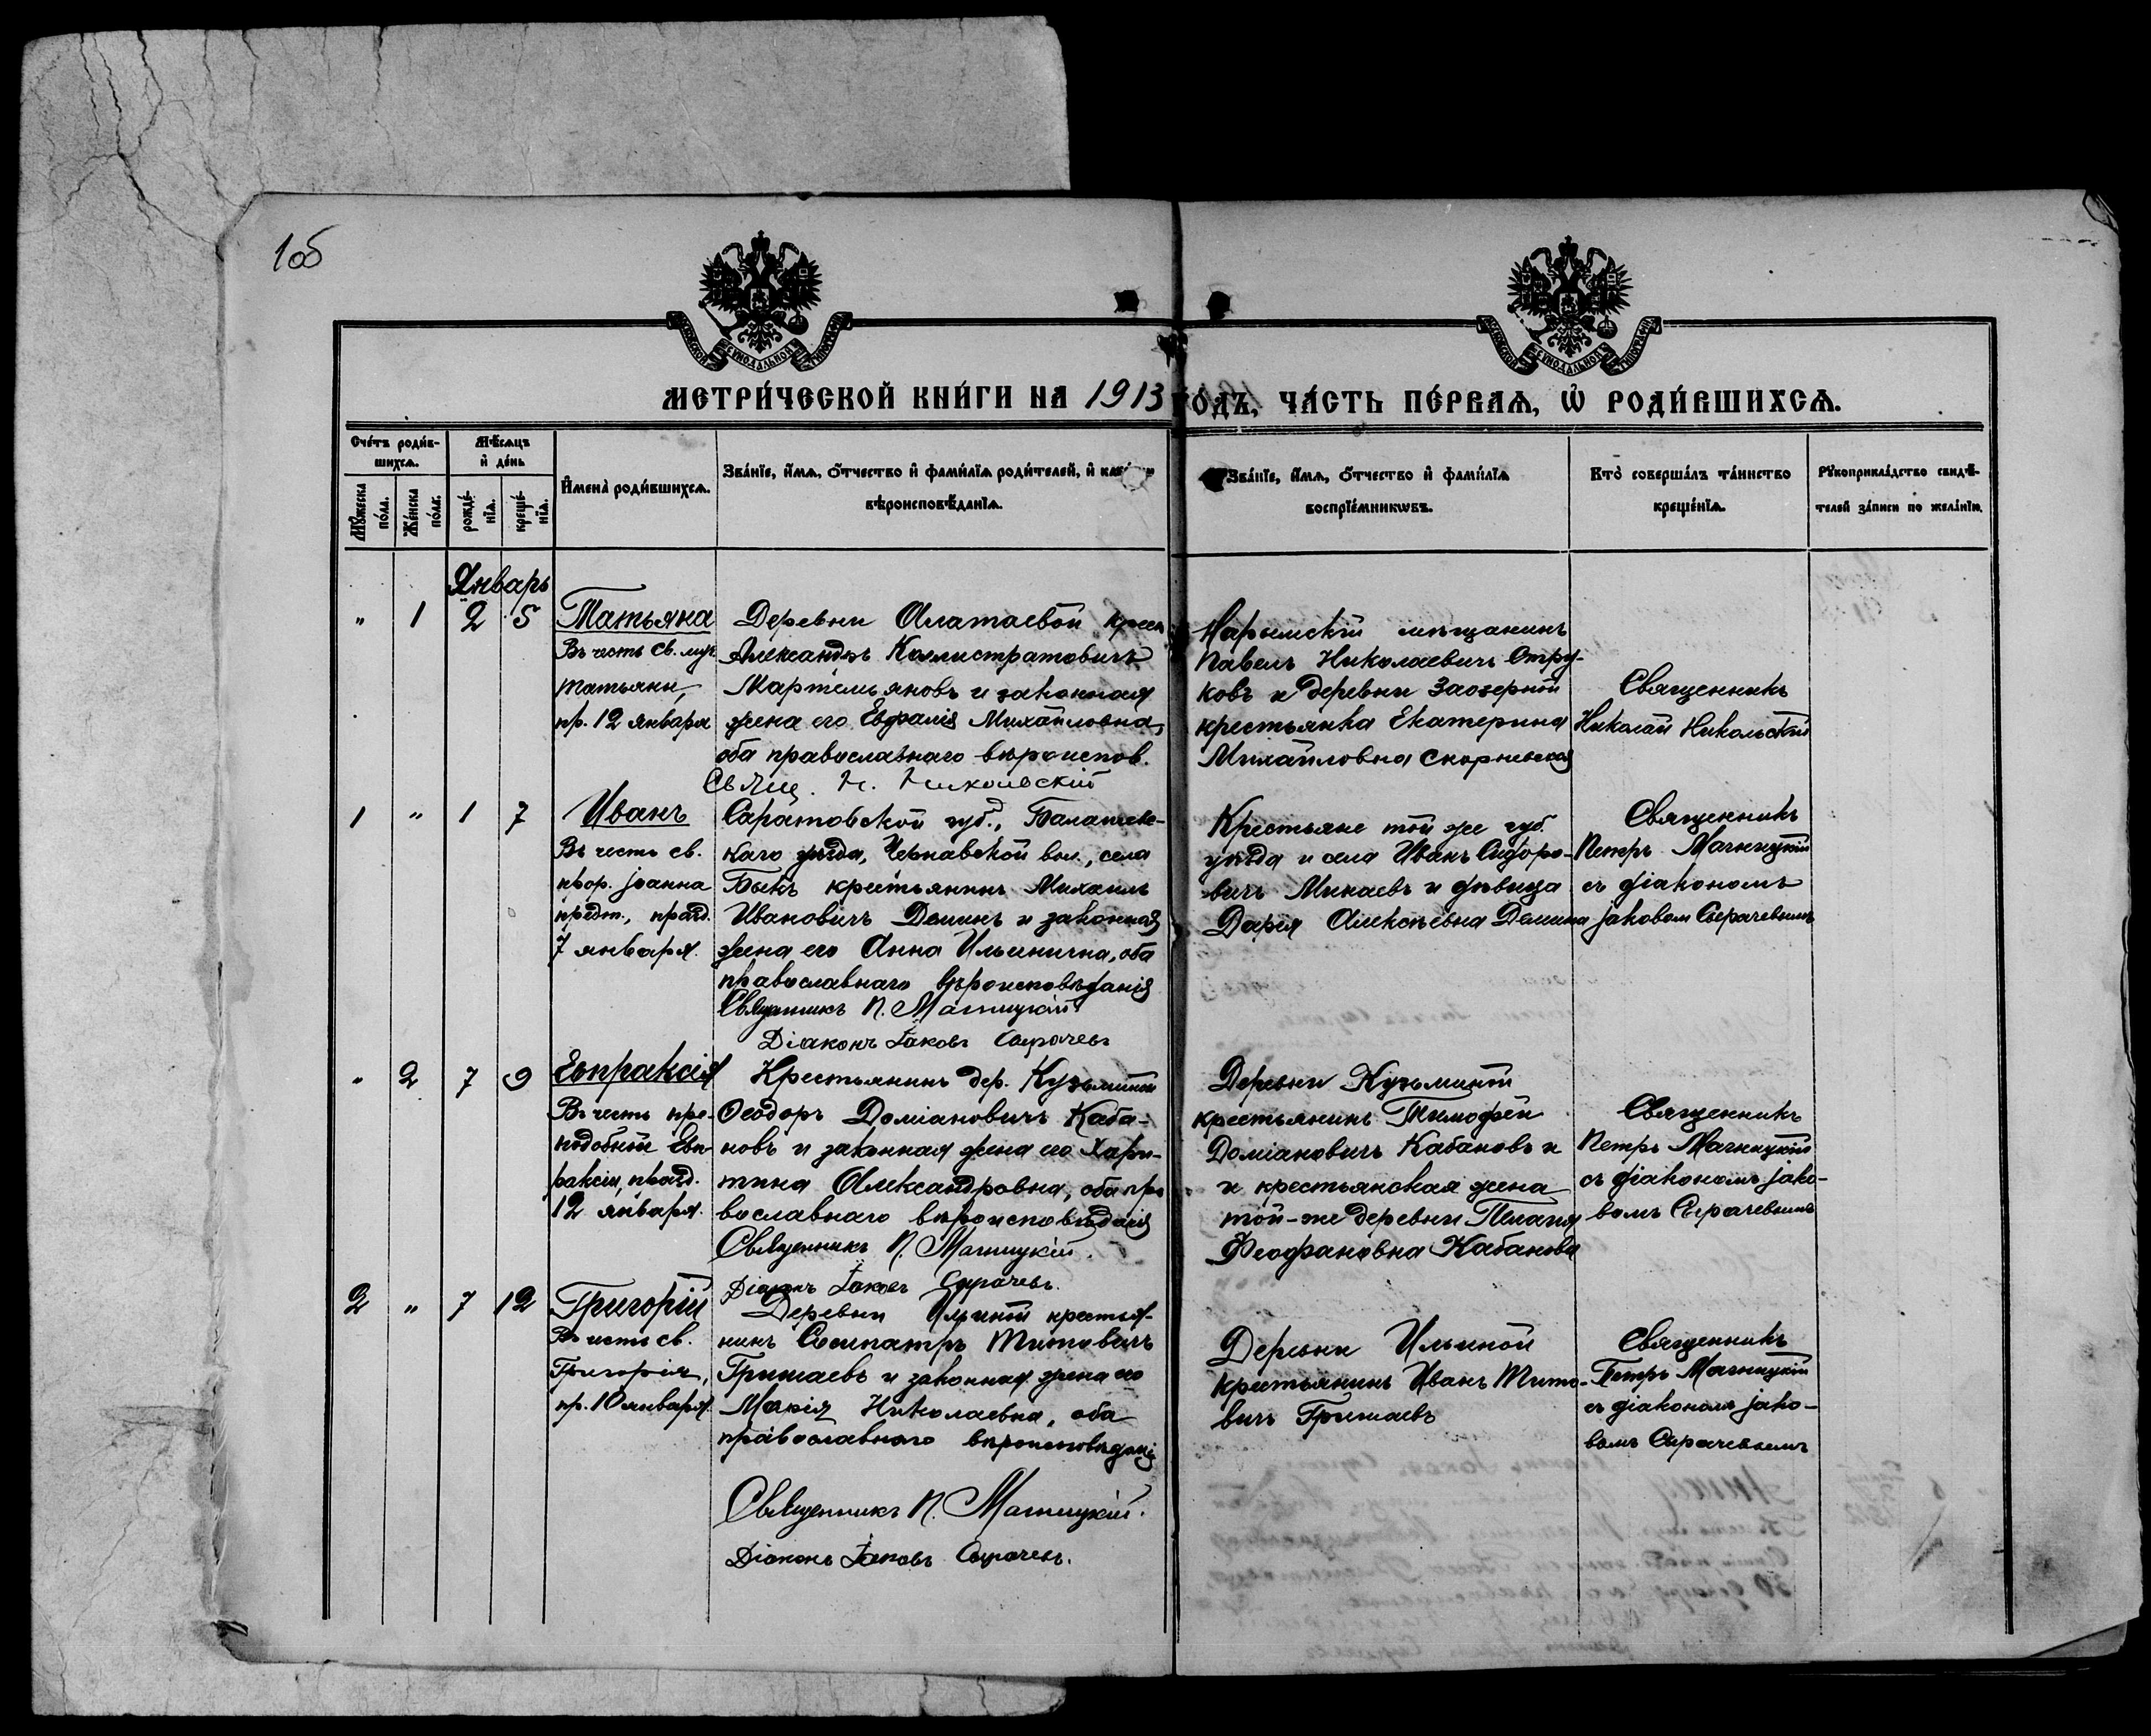 1об
МЕТРИ́ЧЕСКОЙ КНИ́ГИ НА 1913 ГО́ДЪ, ЧА́СТЬ ПЕ́РВАѦ, Ѡ҆ РОДИ́ВШИХСѦ.
Сче́тъ роди́в-
шихсѧ.
Мꙋ́жеска
по́ла.
Же́нска
по́ла.
Мѣ́сѧцъ
и҆ де́нь
рожде́-
нїѧ.
креще́-
нїѧ.
И҆мена̀ роди́вшихсѧ.
Зва́нїе, и҆́мѧ, ѻ҆́тчество и҆ фами́лїѧ роди́телей, и҆
вѣроисповѣ́данїѧ.
Зва́нїе, и҆́мѧ, ѻ҆́тчество и҆ фами́лїѧ
воспрїе́мникѡвъ.
Кто̀ соверша́лъ та́инство
креще́нїѧ.
Рꙋкоприкла́дство свидѣ́-
телей за́писи по жела́нїю.
Январь
" 1 2 5
Татьяна
Въ честь св. муч.
Татьяны,
пр. 12 января
Деревни Алатаевой крест.
Александръ Каллистратовичъ
Мартемьяновъ и законная
жена его Евфалія Михайловна,
оба православнаго вѣроиспов.
Свящ. Н. Никольскій
Нарымскій мѣщанинъ
Павелъ Николаевичъ Стру-
ковъ и деревни Заозерной
крестьянка Екатерина
Михайловна
Священникъ
Николай Никольскій
1 " 1 7
Иванъ
Въ честь св.
прор. Іоанна
предт., празд.
7 января.
Саратовской губ., Балашевс-
каго уѣзда, Чернавской вол., села
Быкъ крестьянинъ Михаилъ
Ивановичъ Деминъ и законная
жена его Анна Ильинична, оба
православнаго вѣроисповѣданія
Священникъ П. Магницкій
Діаконъ Іаковъ Сырачевъ
Крестьяне той же губ.
уѣзда и села Иванъ Сидоро-
вичъ Минаевъ и дѣвица
Дарія Алексѣевна Демина
Священникъ
Петръ Магницкій
съ діакономъ
Іаковомъ Сырачевымъ
" 2 7 9
Евпраксія
Въ честь пре-
подобной Евп-
раксіи, празд.
12 января.
Крестьянинъ дер. Кузьминой
Ѳеодоръ Доміановичъ Каба-
новъ и законная жена его Хари-
тина Александровна, оба пра
вославнаго вѣроисповѣданія
Священникъ П. Магницкій.
Діаконъ Іаковъ Сырачевъ.
Деревни Кузьминой
крестьянинъ Тимофей
Доміановичъ Кабановъ и
и крестьянская жена
той-же деревни Пелагія
Феофановна Кабанова
Священникъ
Петръ Магницкій
съ діакономъ Іако-
вомъ Сырачевымъ
2 " 7 12
Григорій
Въ честь св.
Григорія,
пр. 10 января.
Деревни Ильиной крестья-
нинъ Сосипатръ Титовичъ
Гришаевъ и законная жена его
Марія Николаевна, оба
православнаго вѣроисповѣданія
Священникъ П. Магницкій.
Діаконъ Іаковъ Сырачевъ.
Деревни Ильиной
крестьянинъ Иванъ Тито-
вичъ Гришаевъ
Священникъ
Петръ Магницкій
съ діакономъ Іако-
вомъ Сырачевымъ